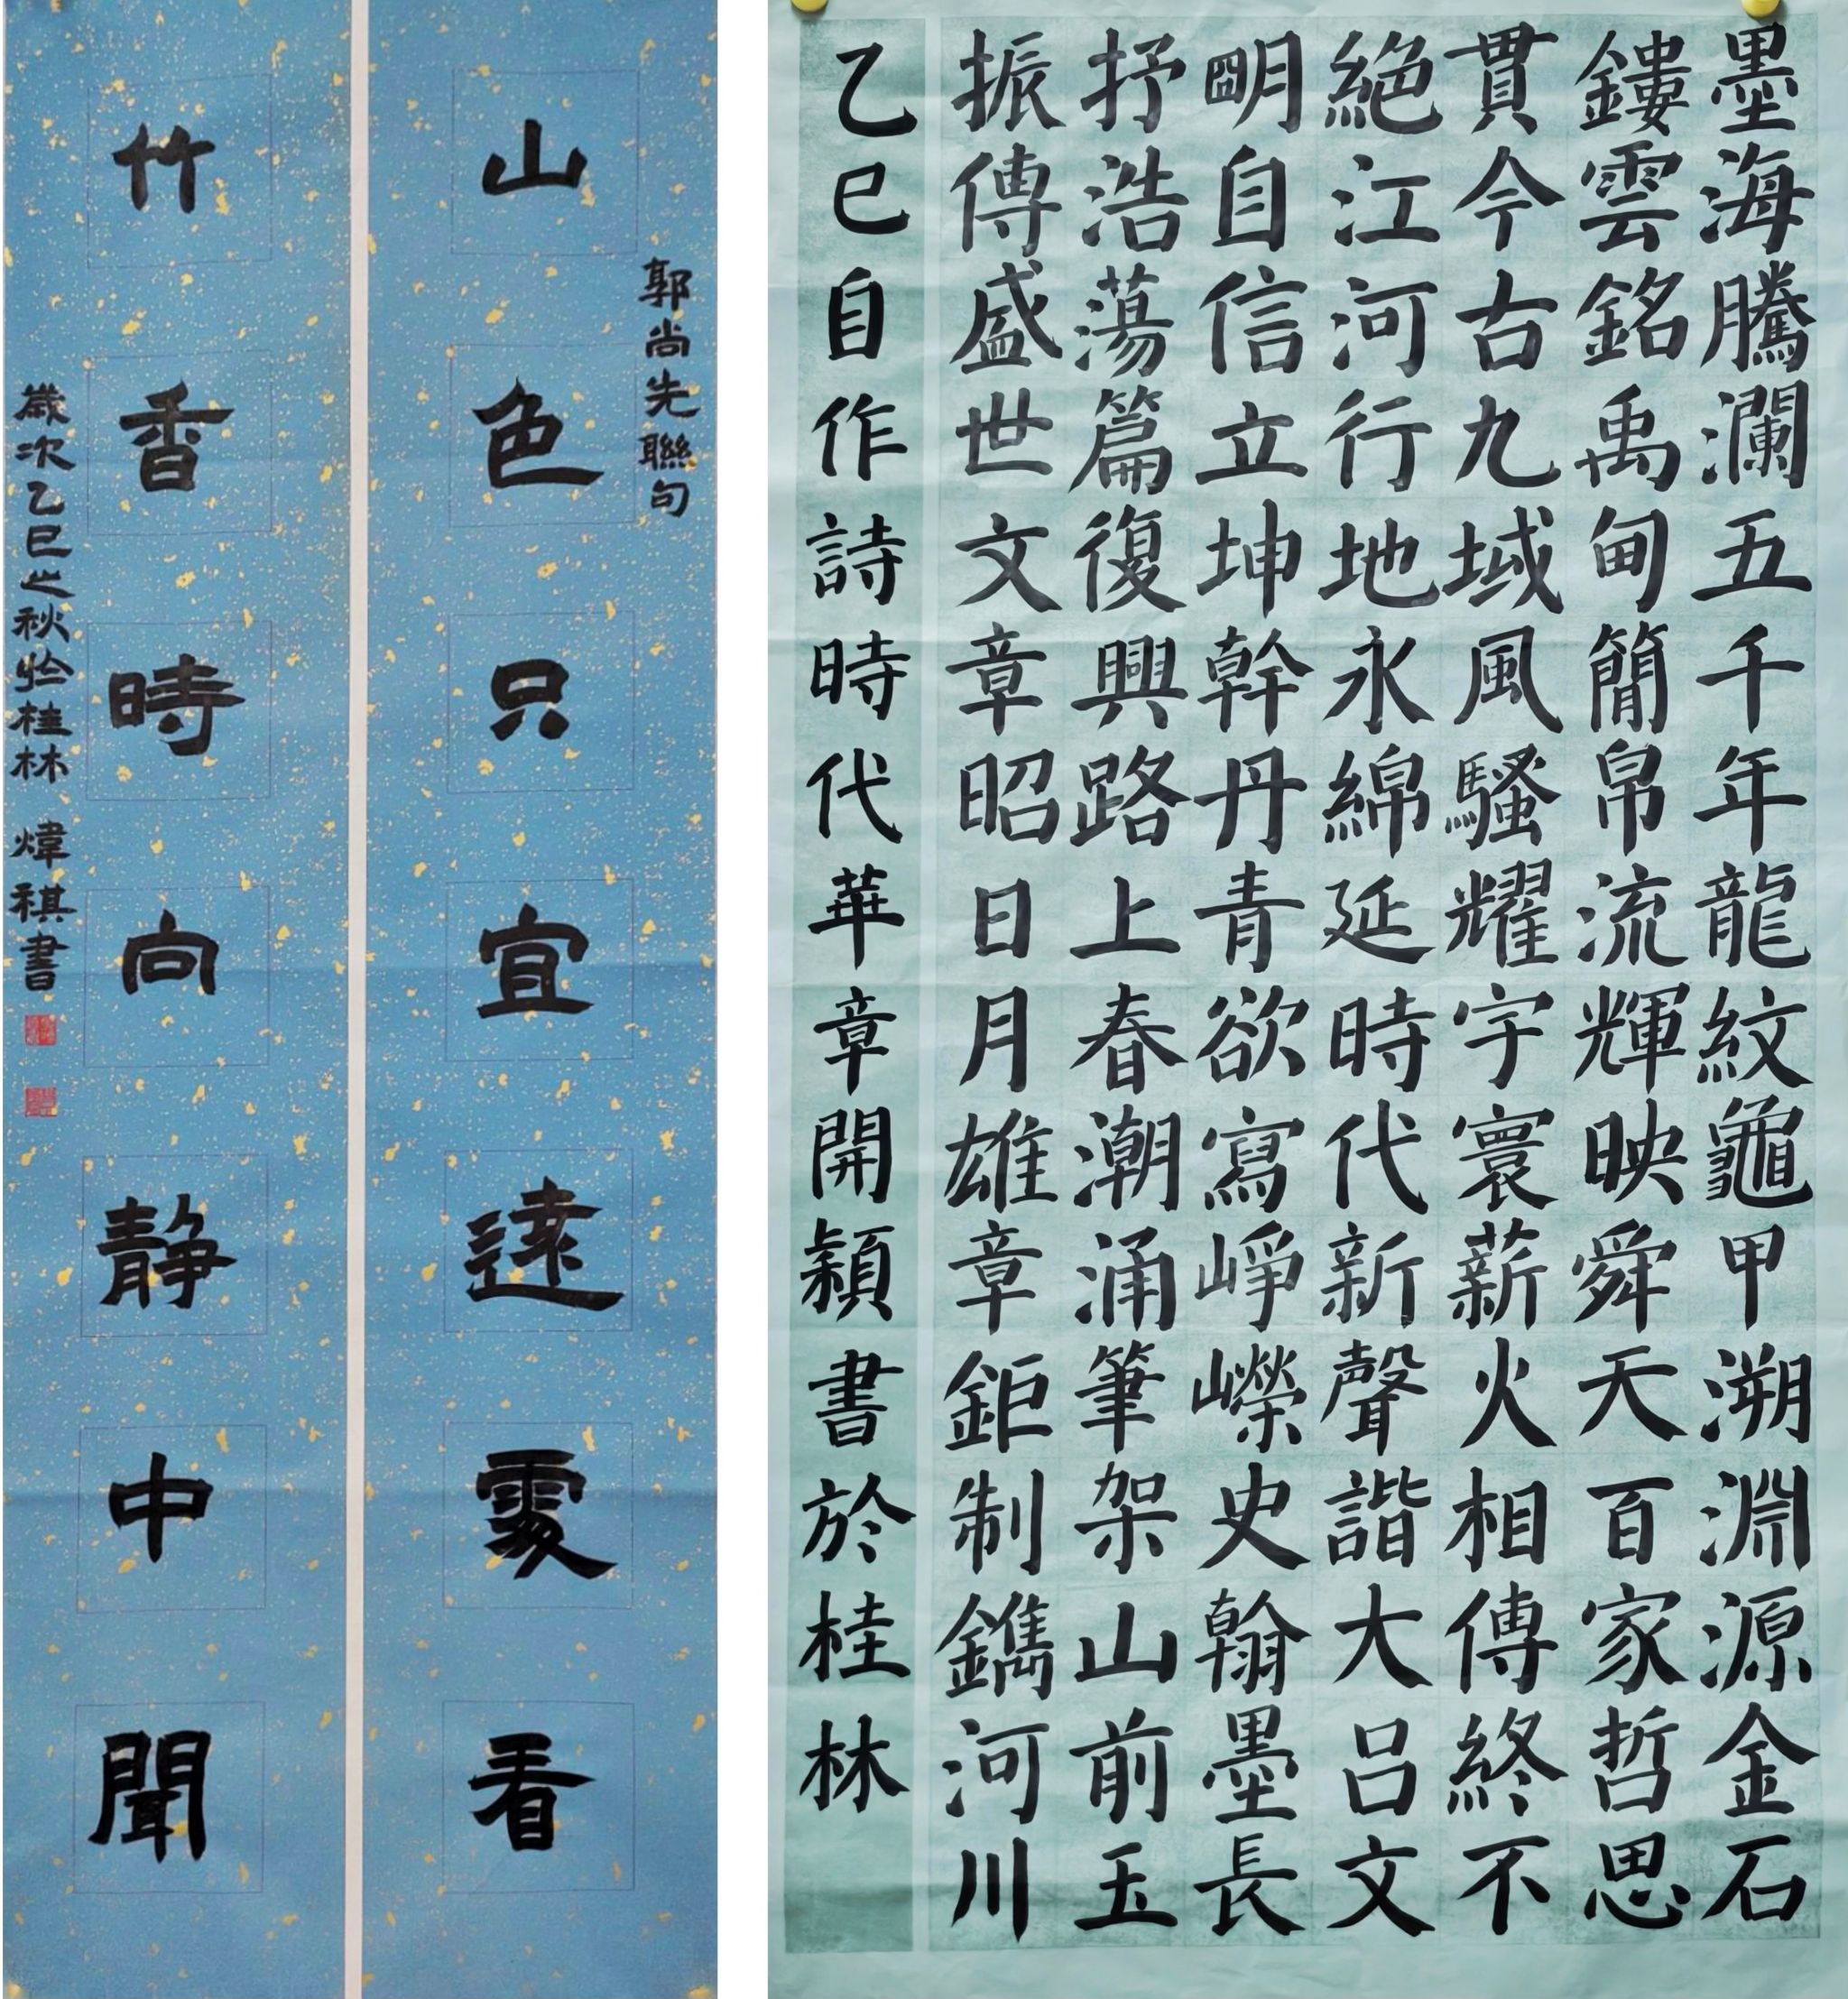 郭尚先聯句
山色只宜遠處看
竹香時向静中聞
歲次乙巳之秋於桂林 煒祺書
墨海騰瀾五千年龍紋龜甲溯淵源金石
鏤雲銘禹甸簡帛流輝映舜天百家哲思
貫今古九域風騷耀宇寰薪火相傳終不
絶江河行地永綿延時代新聲諧大吕文
朙自信立坤幹丹青欲寫崢嶸史翰墨長
抒浩蕩篇復興路上春潮涌筆架山前玉
振傳盛世文章昭日月雄章鉅制鐫河川
乙巳自作詩時代華章開穎書於桂林